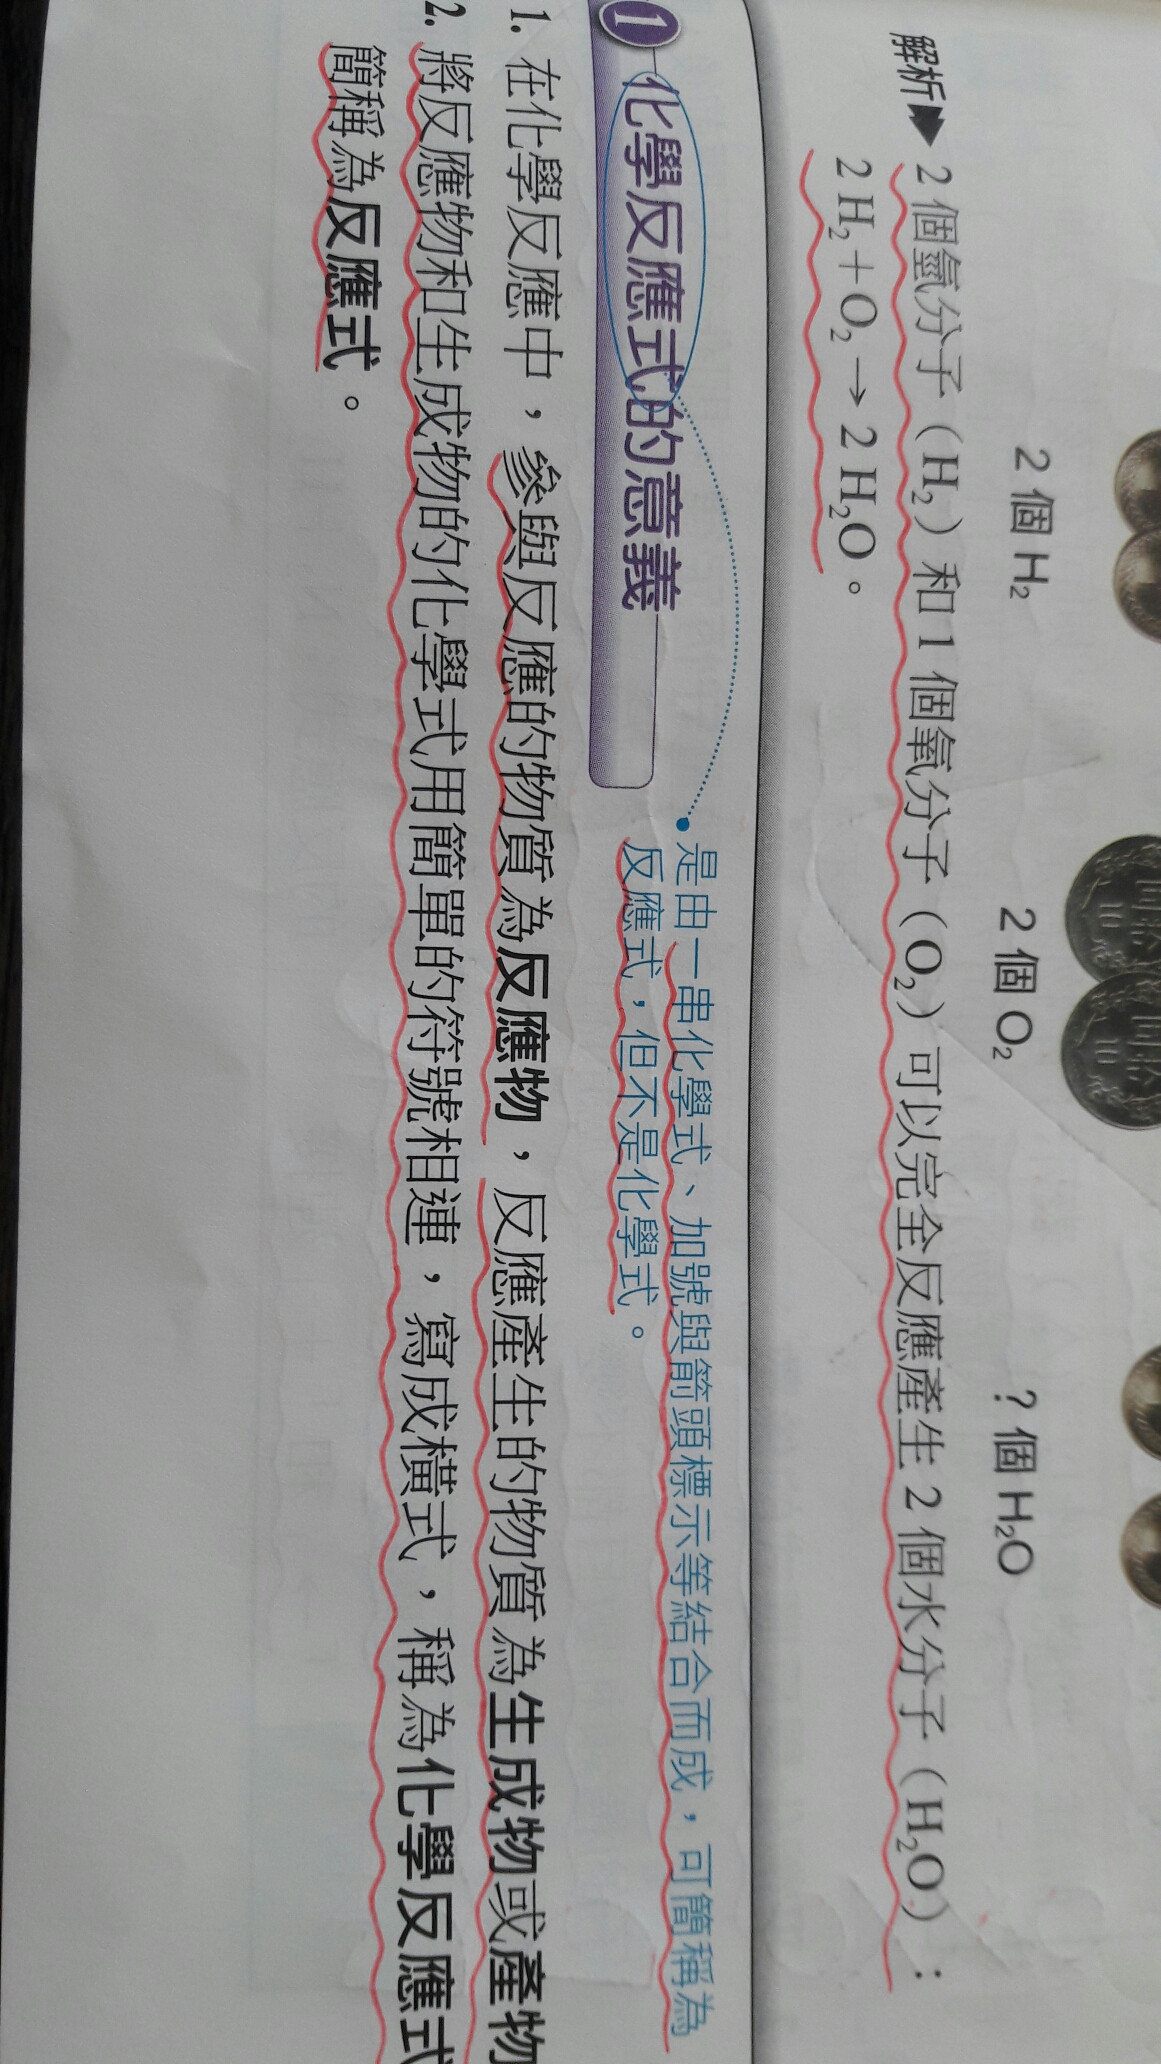 2 個 H₂　2 個 O₂　? 個 H₂O
解析▶ 2 個氫分子(H₂)和 1 個氧分子(O₂)可以完全反應產生 2 個水分子(H₂O):
2 H₂+O₂→2 H₂O。
1 化學反應式的意義
是由一串化學式、加號與箭頭標示等結合而成,可簡稱為
反應式,但不是化學式。
1. 在化學反應中,參與反應的物質為反應物,反應產生的物質為生成物或產物
2. 將反應物和生成物的化學式用簡單的符號相連,寫成橫式,稱為化學反應式
簡稱為反應式。